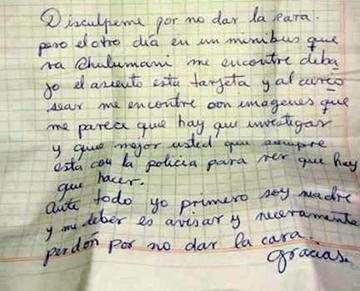 Disculpeme por no dar la cara.
pero el otro dia en un minibus que
va Chulumani me encontre deba
jo el asiento esta tarjeta y al curio
sear me encontre con imagenes que
me parece que hay que investigar
y que mejor usted que siempre
esta con la policia para ver que hay
que hacer.
Ante todo yo primero soy madre
y mi deber es avisar y nuevamente
perdón por no dar la cara.
Gracias.